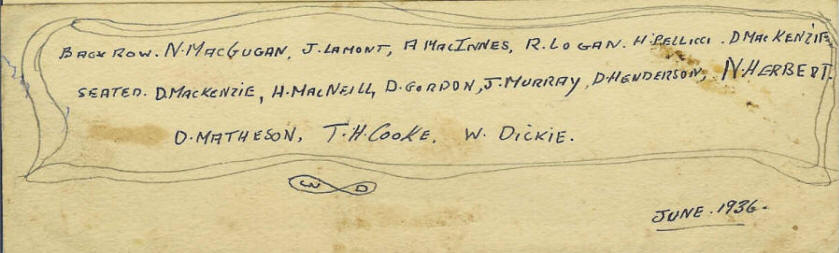 BACK ROW. N. MACGUGAN, J. LAMONT, A MACINNES, R. LOGAN. H. PELLICCI. D MACKENZIE
SEATED. D. MACKENZIE, H. MACNEILL, D. GORDON, J. MURRAY, D. HENDERSON, N. HERBERT.
D. MATHESON, T. H. COOKE. W. DICKIE.
W D
JUNE. 1936.